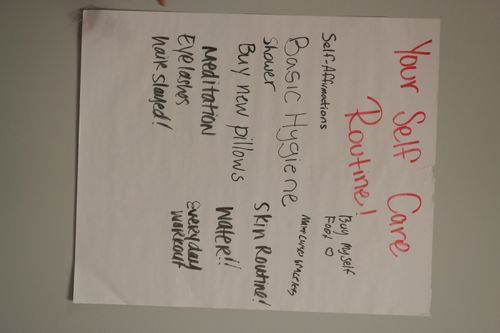 Your Self Care
Routine!
Self-Affirmations
Basic Hygiene
Shower
Buy new pillows
Meditation
Eyelashes
hair slayed!
Buy Myself
Food ♡
Skin Routine!
Water!!
everyday
workout